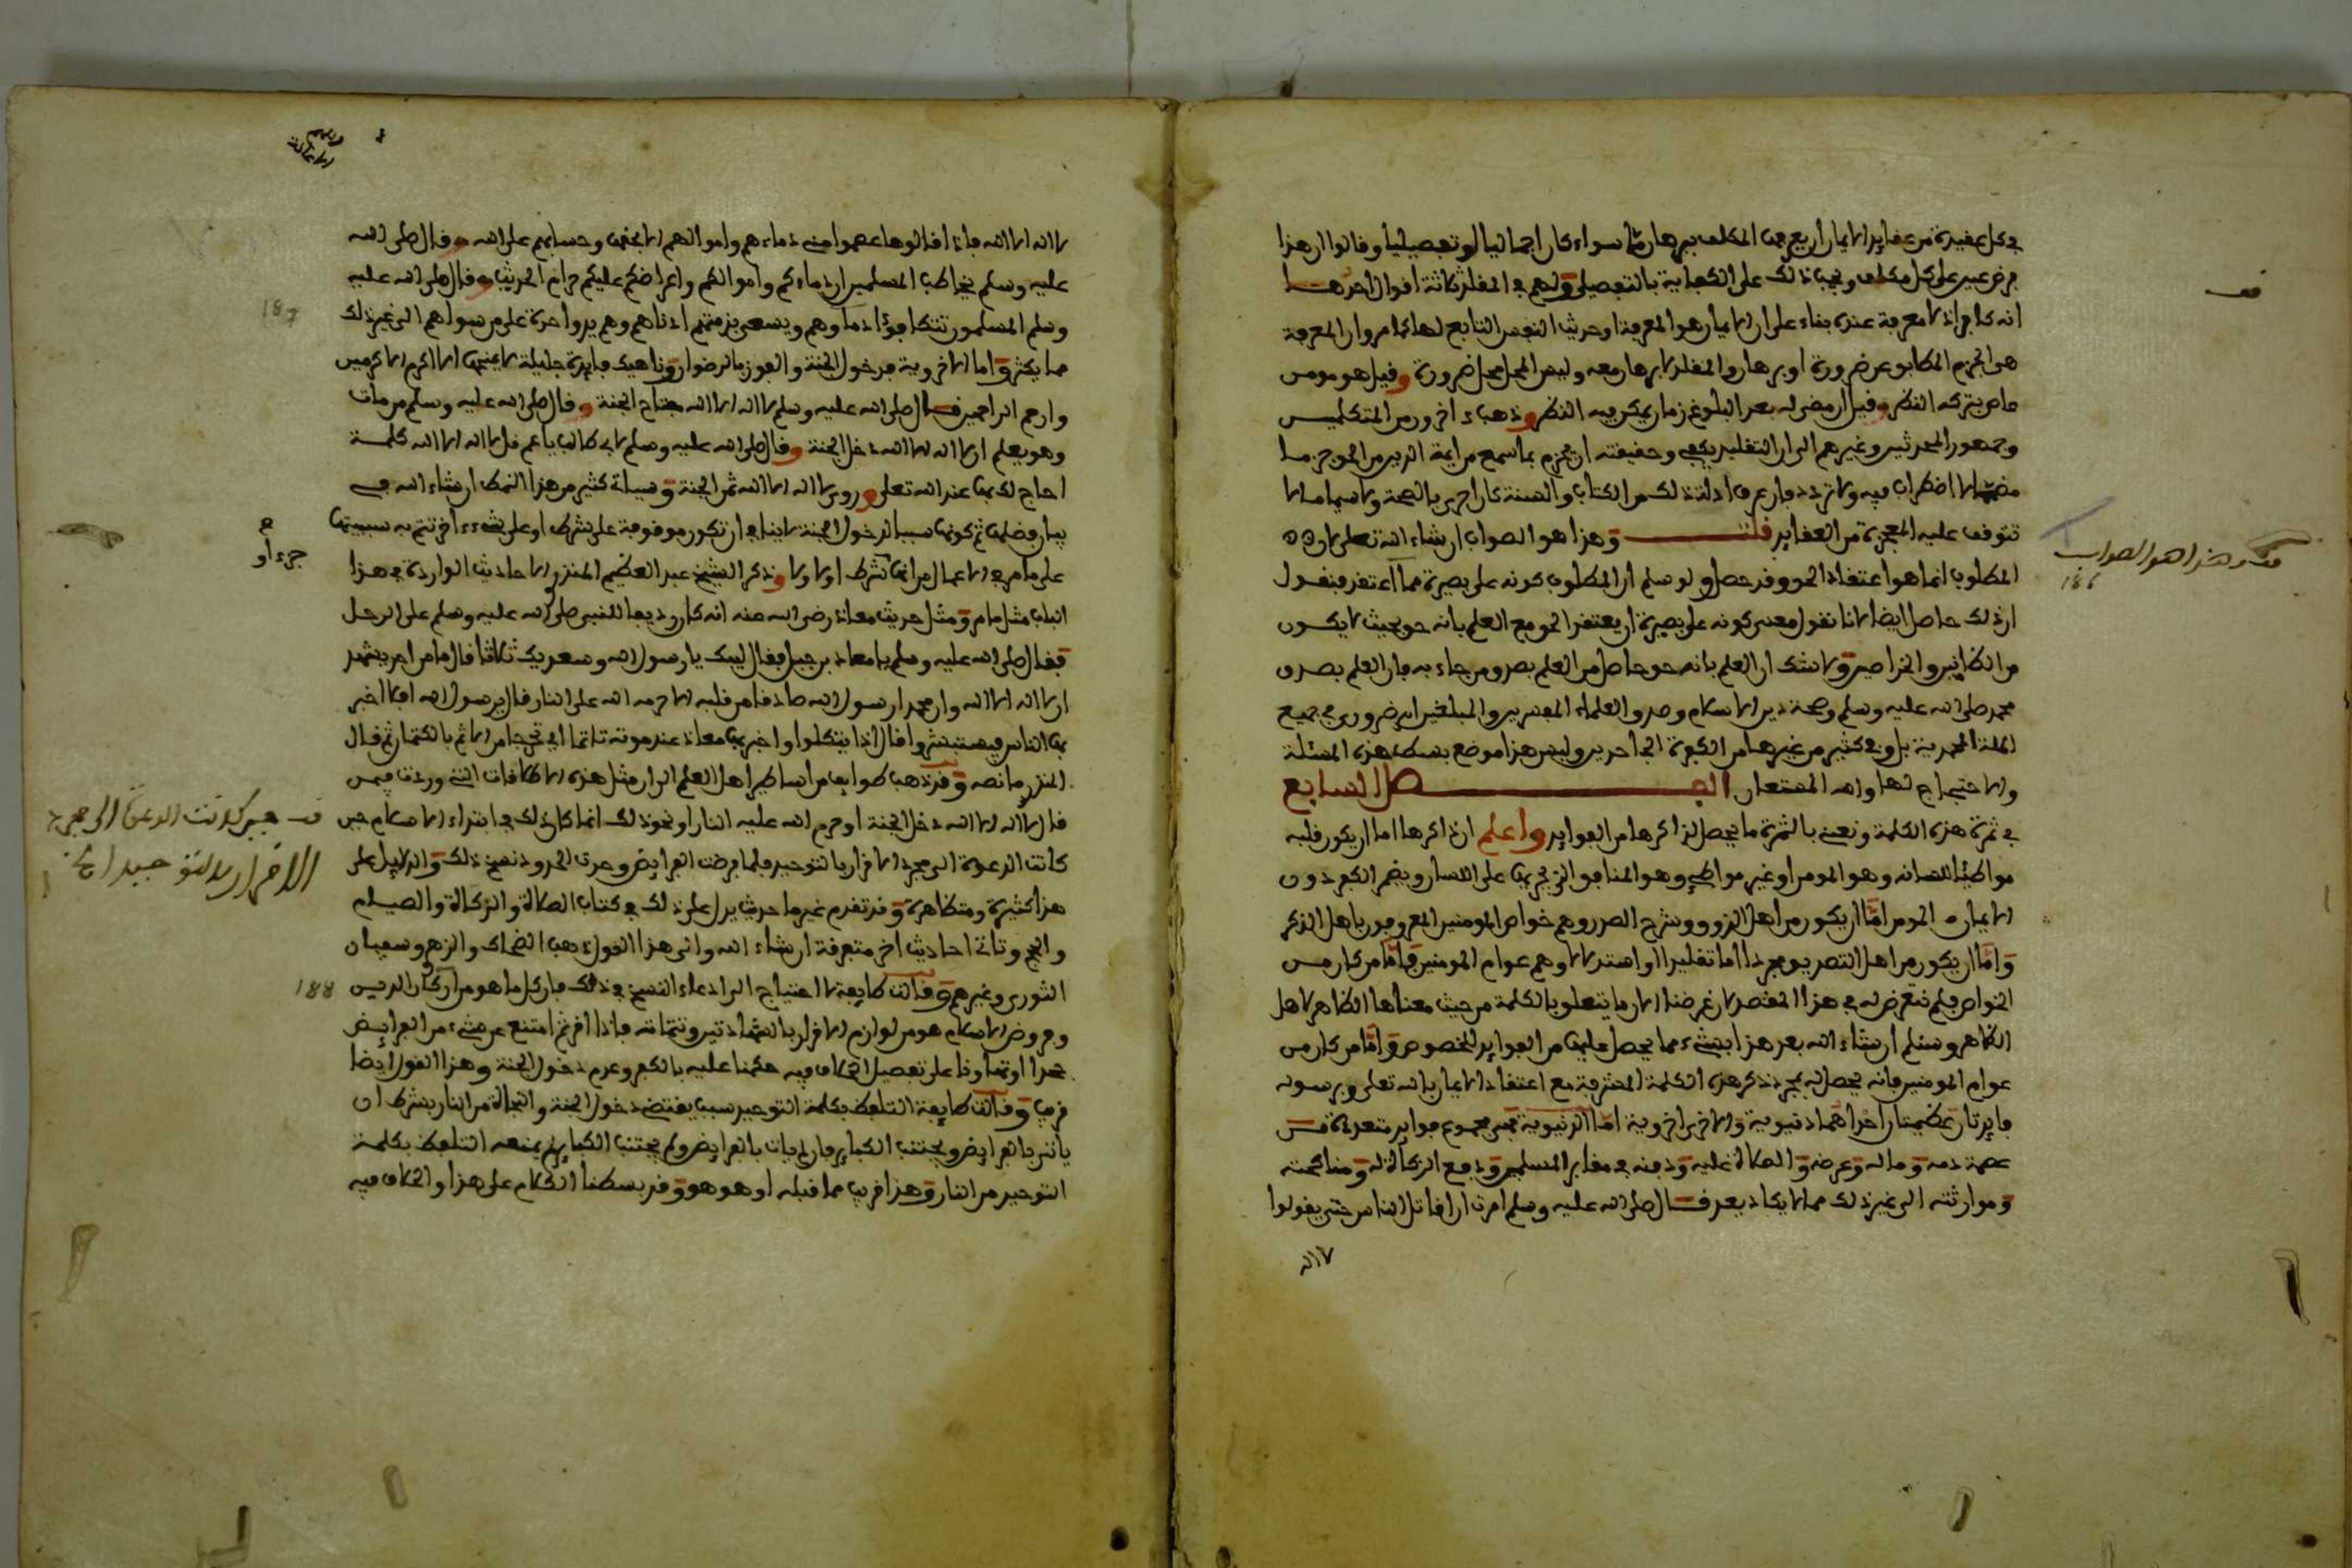 في كل عقيدة من عقايد الايمان اربع من المكلف ببرهان ما سواء كان اجماليا او تفصيليا وقالوا ان هذا
فرض عين على كل مكلف ويجب ذلك على الكفاية بالتفصيلي ولهم في المقلد ثلاثة اقوال احدهـــا
انه كافر اذ لا معرفة عنده بناء على ان الايمان هو المعرفة او حديث النفس التابع لها كما مر وان المعرفة
هي الجزم المطابق عن ضرورة او برهان والمقلد لا برهان معه وليس المحل محل ضرورة وقيل هو مومن
عاص بترك النظر وقيل ان مضى له بعد البلوغ زمان يمكن فيه النظر وذهب اخرون من المتكلميـن
وجمهور المحدثين وغيرهم الى ان التقليد يكفي وحقيقته ان يجزم بما سمع من ايمة الدين من الحق جزمـا
مصمما لا اضطراب فيه ولا تردد فان عرف ادلة ذلك من الكتاب والسنة كان احرى بالصحة ولا سيما ما لا
تتوقف عليه المعجزة من العقايد قلتــــ وهذا هو الصواب ان شاء الله تعلى لان
المطلوب انما هو اعتقاد الحق وقد حصل ولو سلم ان المطلوب كونه على بصيرة مما اعتقد فنقـول
ان ذلك حاصل ايضا لانا نقول معنى كونه على بصيرة ان يعتقد الحق مع العلم بانه حق بحيث لا يكـون
من الظانين والخراصين ولا شك ان العلم بانه حق حاصل من العلم بصدق من جاء به فان العلم بصدق
محمد صلى الله عليه وسلم وصحة دين الاسلام وصدق العلماء المفسرين والمبلغين له ضروري في جميع
الملة المحمدية بل وفي كثير من غيرها من الكفرة الجاحدين وليس هذا موضع بسط هذه المسئلة
والاحتجاج لها والله المستعان الفـــــصل السابع
في ثمرة هذه الكلمة ونعني بالثمرة ما يحصل لذاكرها من الفوايد واعلم ان ذاكرها اما ان يكون قلبه
مواطئا للسانه وهو المومن او غير مواطئ وهو المنافق الذي يجريها على اللسان ويضمر الكفر دون
الايمان والمومن اما ان يكون من اهل الذوق وشرح الصدر وهم خواص المومنين المعروفون باهل الذكر
واما ان يكون من اهل التصديق مجردا اما تقليدا او استدلالا وهم عوام المومنين فاما من كان مـن
الخواص فلم نتعرض له في هذا المختصر لان غرضنا الان ما يتعلق بالكلمة من حيث معناها الظاهر لاهل
الظاهر وسنلم ان شاء الله بعد هذا بشيء مما يحصل عليها من الفوايد للخصوص واما من كان من
عوام المومنين فانه يحصل له بمجرد ذكر هذه الكلمة المشرفة مع اعتقاد الايمان بالله تعلى وبرسوله
فايدتان عظيمتان احداهما دنيوية والاخرى اخروية اما الدنيوية فهي مجموع فوايد متعددة مــن
عصمة دمه وماله وعرضه والصلاة عليه ودفنه في مقابر المسلمين ودفع الزكاة له ومناكحته
وموارثته الى غير ذلك مما لا يكاد يعد قـــال صلى الله عليه وسلم امرت ان اقاتل الناس حتى يقولوا
لا اله
وهذا هو الصواب
186
لا اله الا الله فاذا قالوها عصموا مني دماءهم واموالهم الا بحقها وحسابهم على الله وقال صلى الله
عليه وسلم يخاطب المسلمين ان دماءكم واموالكم واعراضكم عليكم حرام الحديث وقال صلى الله عليه
وسلم المسلمون تتكافؤ دماوهم ويسعى بذمتهم ادناهم وهم يد واحدة على من سواهم الى غير ذلك
مما يكثر واما الاخروية فدخول الجنة والفوز بالرضوان وناهيك فايدة جليلة لا يمنحها الا اكرم الاكرميـن
وارحم الراحمين قـــال صلى الله عليه وسلم لا اله الا الله مفتاح الجنة وقال صلى الله عليه وسلم من مات
وهو يعلم ان لا اله الا الله دخل الجنة وقال صلى الله عليه وسلم لابي طالب يا عم قل لا اله الا الله كلمــة
احاج لك بها عند الله تعلى وروي لا اله الا الله ثمن الجنة وسياتي كثير من هذا النمط ان شاء الله فـي
بيان فضلها ثم كونها سببا لدخول الجنة لا ينافي ان تكون موقوفة على شرط او على شيء اخر تتم به سببيتها
على ما مر في الاعمال من انها شرط اولا وذكر الشيخ عبد العظيم المنذري الاحاديث الواردة في هـذا
الباب مثل ما مر ومثل حديث معاذ رضي الله عنه انه كان رديفا للنبي صلى الله عليه وسلم على الرحـل
فقال صلى الله عليه وسلم يا معاذ بن جبل فقال لبيك يا رسول الله وسعديك ثلاثا قال ما من احد يشهد
ان لا اله الا الله وان محمدا رسول الله صادقا من قلبه الا حرمه الله على النار قال يرسول الله افلا اخبر
بها الناس فيستبشروا قال اذا يتكلوا واخبر بها معاذ عند موته تاثما اي تحرجا من الاثم بالكتمان ثم قـال
المنذري ما نصه وقد ذهب طوايف من اساطين اهل العلم الى ان مثل هذه الاطلاقات التي وردت فيمـن
قال لا اله الا الله دخل الجنة او حرم الله عليه النار او نحو ذلك انما كان ذلك في ابتداء الاسلام حين
كانت الدعوة الى مجرد الاقرار بالتوحيد فلما فرضت الفرايض وحدت الحدود نسخ ذلك والدلايل على
هذا كثيرة ومتظاهرة وقد تقدم غير ما حديث يدل على ذلك في كتاب الصلاة والزكاة والصيـام
والحج وتاتي احاديث اخر متفرقة ان شاء الله والى هذا القول ذهب الضحاك والزهري وسفيان
الثوري وغيرهم وقالت طايفة لا احتياج الى ادعاء النسخ في ذلك فان كل ما هو من اركان الديـن
وفروض الاسلام هو من لوازم الاقرار بالشهادتين وتتماته فاذا اقر ثم امتنع عن شيء من الفرايـض
جحدا او تهاونا على تفصيل الخلاف فيه حكمنا عليه بالكفر وعدم دخول الجنة وهذا القول ايضا
قريب وقالت طايفة التلفظ بكلمة التوحيد سبب يقتضي دخول الجنة والنجاة من النار بشرط ان
ياتي بالفرايض ويجتنب الكباير فان لم يات بالفرايض ولم يجتنب الكباير لم يمنعه التلفظ بكلمـة
التوحيد من النار وهذا قريب مما قبله او هو هو وقد بسطنا الكلام على هذا والخلاف فيه
187
188
حين كانت الدعوة الى مجرد
الاقرار بالتوحيد الخ